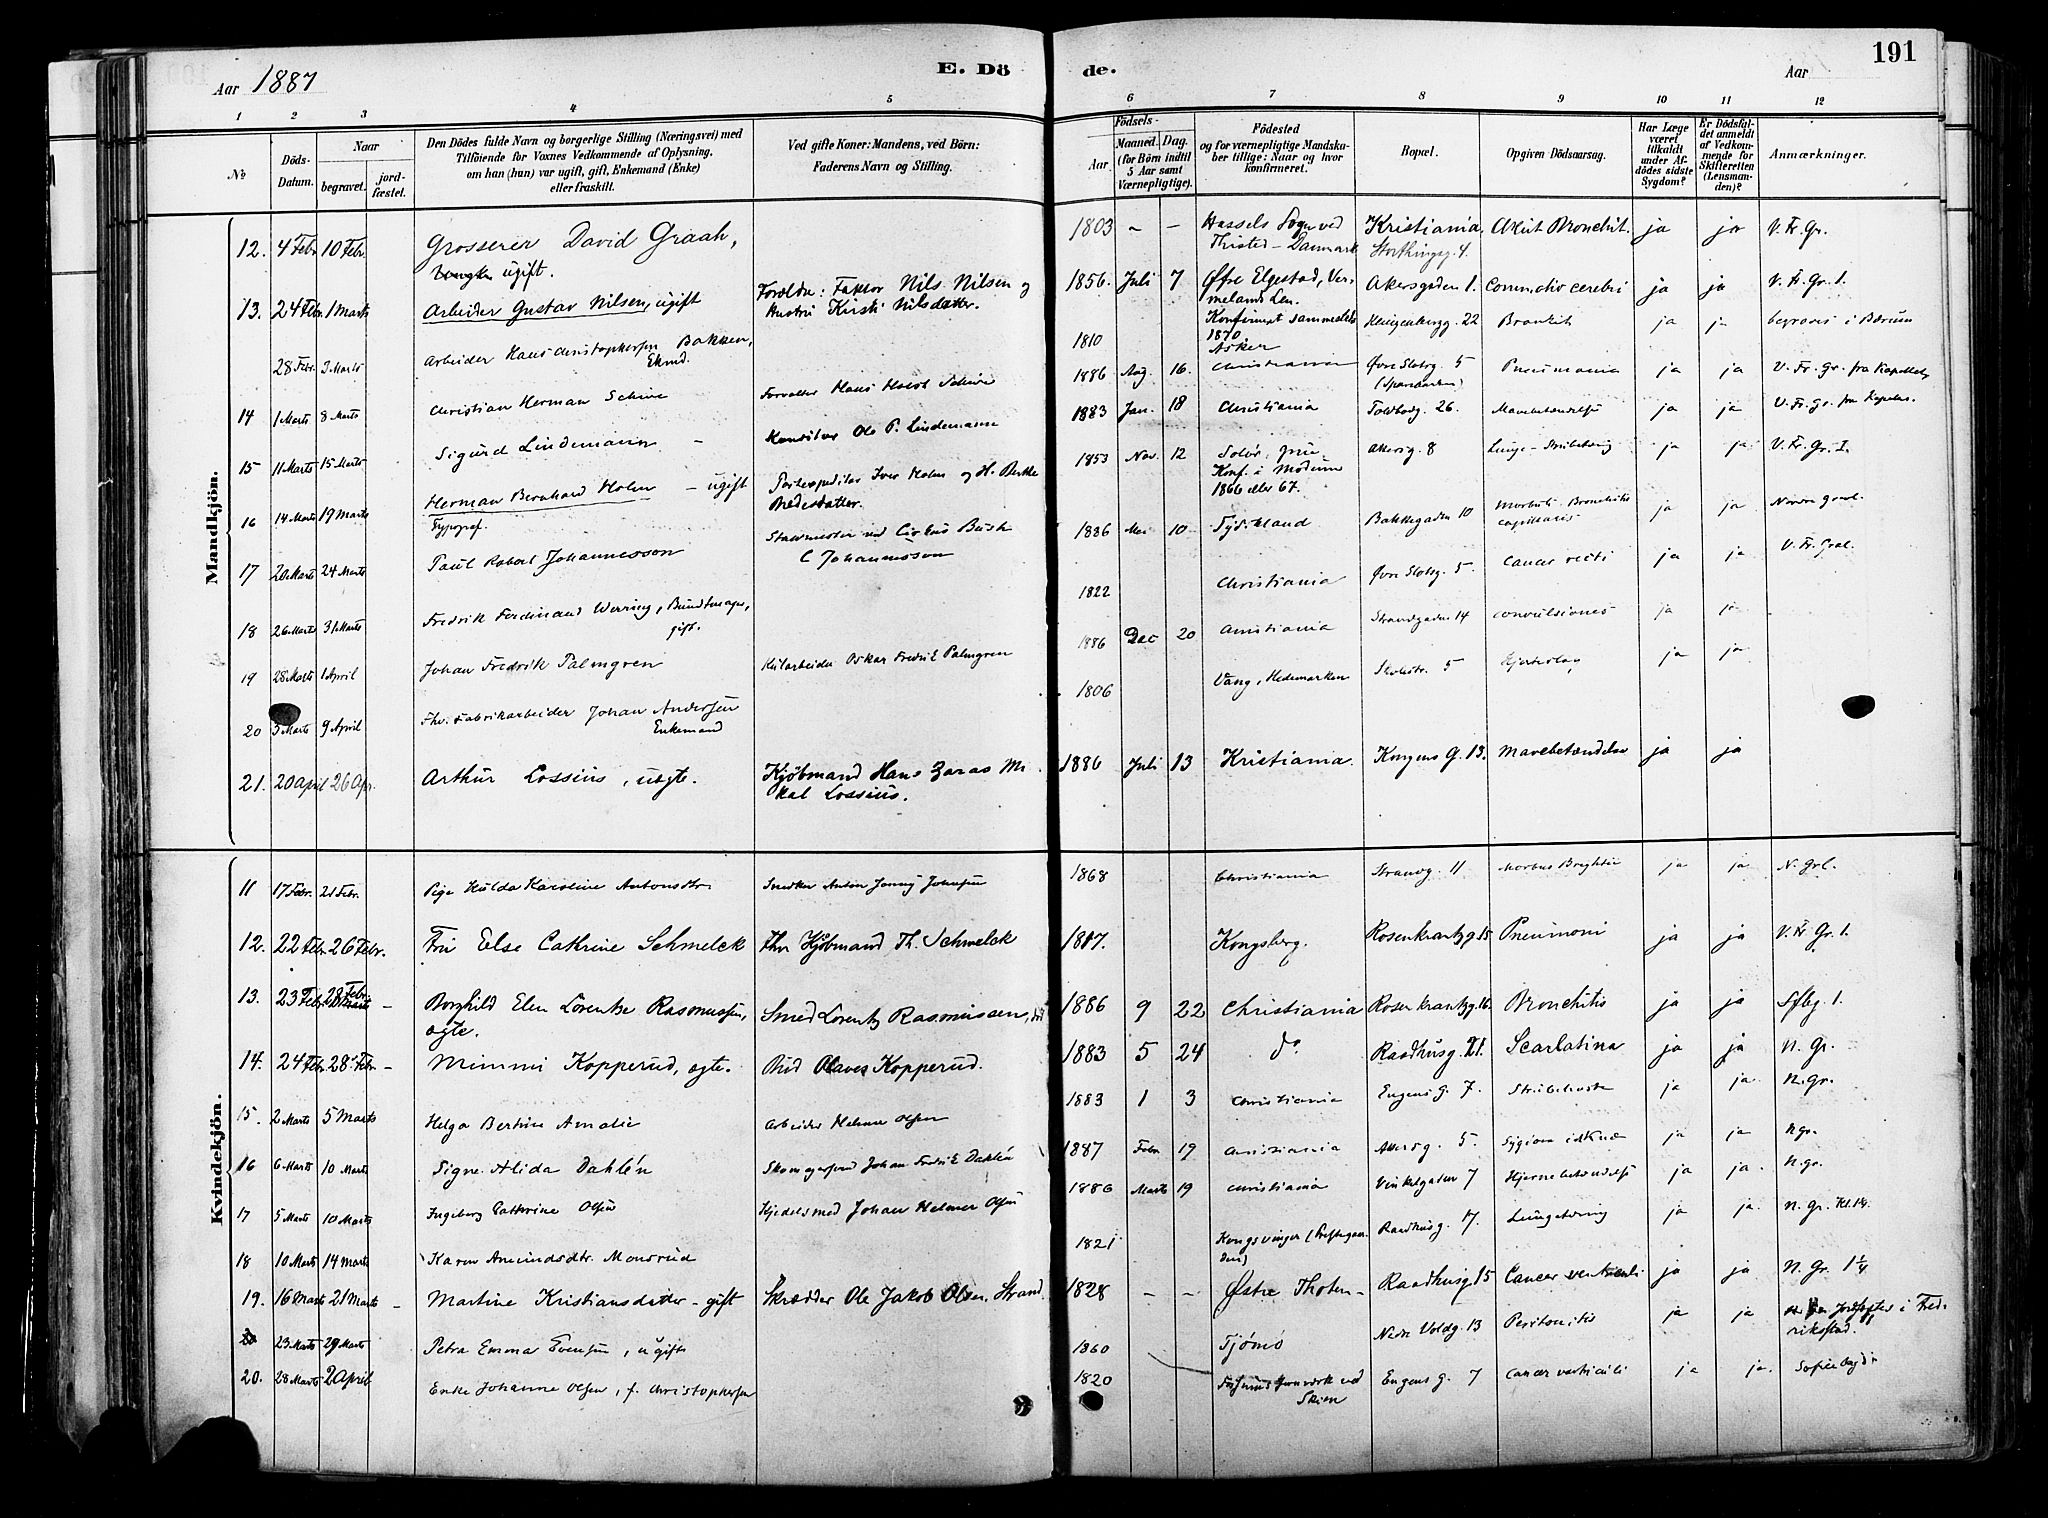 Aar 1887
E. Dö de.
191
Aar
1 2 3 4 5 6 7 8 9 10 11 12
No
Döds-Datum.
Naar
begravet. jordfæstet.
Den Dödes fulde Navn og borgerlige Stilling (Næringsvei) med
Tilföiende for Voxnes Vedkommende af Oplysning,
om han (hun) var ugift, gift, Enkemand (Enke)
eller fraskilt.
Ved gifte Koner: Mandens, ved Börn:
Faderens Navn og Stilling.
Födsels-
Aar Maaned. Dag.
(for Börn indtil
5 Aar samt
Værnepligtige).
Födested
og for værnepligtige Mandska-
ber tillige: Naar og hvor
konfirmeret.
Bopæl.
Opgiven Dödsaarsag.
Har Læge
været
tilkaldt
under Af-
dödes sidste
Sygdom?
Er Dödsfal-
det anmeldt
af Vedkom-
mende for
Skifteretten
(Lensman-
den)?
Anmærkninger.
Mandkjön.
12. 4 Febr 10 Febr. Grosserer David Graah, ugift. 1803 – – Hassels Sogn ved Thisted – Danmark Kristiania, Storthingsg. 4. Akut Bronchit. ja ja V. Fr. Gr.
13. 24 Febr. 1 Marts Arbeider Gustav Nilsen, ugift Forældre: Faktor Nils Nilsen og Hustru Kirsti Nilsdatter. 1856. Juli 7 Øfre Elgestad, Vermelands Len. Konfirmert sammesteds 1870 Akersgaden 1. Commotio cerebri ja ja V. Fr. Gr. 1.
28 Febr. 3 Marts Arbeider Hans Christophersen Bakken, Ekmd. 1810 Asker 22 Bronkit ja ja begraves i Bærum
14 1 Marts 8 Marts Christian Herman Schive Forvalter Hans Schive 1886 Aug 16. Christiania Øvre Slotsg. 5 (Sparebanken) Pneumonia ja ja V. Fr. Gr. fra Kapellet
15 11 Marts 15 Marts Sigurd Lindemann – Ole P. Lindemann 1883 Jan. 18 Christiania Toldbodg. 26. Mavebetændelse ja ja V. Fr. Gr. fra Kapellet.
16 14 Marts 19 Marts Herman Bernhard Holm – ugift Typograf. Iver Holm og H. Berthe Pedersdatter. 1853 Nov. 12 Solør, Grue, Konf. i Modum 1866 eller 67. Akersg. 8 ja ja V. Fr. Gr. I.
17 20 Marts 24 Marts Paul Robert Johannesson Staldmester ved Cirkus Busch C Johannesson 1886 Mai 10 Tydskland Bakkegaden 10 Morbili. Bronchitis capillaris ja ja Nordre Gravl.
18 26 Marts 31 Marts Fredrik Ferdinand Werring, Bundtmager, gift. 1822 Christiania Øvre Slotsg. 5. Cancer recti ja ja V. Fr. Gral.
19 28 Marts 1 April Johan Fredrik Palmgren Oskar Fredrik Palmgren 1886 Dec 20 Christiania Strandgaden 14 convulsiones ja ja
20 3 Marts 9 April Fhv. Fabrikarbeider Johan Andersen Enkemand 1806 Vang, Hedemarken 5 Hjerteslag ja ja
21. 20 April 26 Apr. Arthur Lossius, uægte. Kjøbmand Hans Zaras Mikal Lossius. 1886 Juli 13 Kristiania. Kongens G. 13. Mavebetændelse ja ja
Kvindekjön.
11 17 Febr. 21 Febr. Pige Hulda Karoline Antonsdtr. Snedker Anton Johnsen 1868 Christiania Strandg. 11 Morbus Brightii ja ja N. Grl.
12. 22 Febr 26 Febr. Fru Else Cathrine Schmelck Fhv Kjöbmand Th. Schmelck 1817. Kongsberg. Rosenkrantzg 15 Pneumoni ja ja V. Fr. Gr. 1.
13. 23 Febr 28 Febr – Borghild Elen Lorentze Rasmussen, ægte. Smed Lorentz Rasmussen, 1886 9 22 Christiania Rosenkrantzg. 16. Bronchitis ja ja Sfbg. 1.
14. 24 Febr. 28 Febr – Mimmi Kopperud, ægte. Bud Olaves Kopperud. 1883 5 24 do Raadhusg. 21. Scarlatina ja ja N. Gr.
15. 2 Marts 5 Marts Helga Bertine Amalie Arbeider Helmer Olsen 1883 1 3 Christiania Eugens g. 7. Strubehoste ja ja. N. Gr.
16 6 Marts 10 Marts Signe Alida Dahlén Skomagersvend Johan Fredrik Dahlén 1887 Febr 19 Christiania Akersg. 5. Sygdom i et Knæ ja ja N gr.
17 5 Marts 10 Marts Ingeborg Cathrine Olsen Kjedelsmed Johan Helmer Olsen 1886 Marts 19 Christiania Vinkelgaden 7 Hjernebetændelse ja ja. N. gr.
18 10 Marts 14 Marts Karen Amundsdtr. Monsrud 1821 Kongsvinger (Præstegaarden) Raadhusg. 17. Lungetæring ja ja. N. Gr. Kl. 1¼.
19. 16 Marts 21 Marts – Martine Kristiansdatter – gift Skrædder Ole Jakob Olsen Strand. 1828 – – Østre Thoten – Raadhusg. 15 Cancer ventriculi ja ja N. Gr. 1¼
23 Marts 29 Marts Petra Emma Svensen, ugift 1860 Tjømø Nedre Voldg. 13 Peritonitis ja ja Jordfæstes i Fredrikstad.
20. 28 Marts 2 April Enke Johanne Olsen, f. Christophersen 1820 Jernværk ved Skien Eugens g. 7 Cancer ventriculi ja ja.